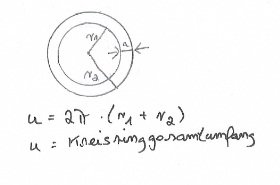 r₁
a
r₂
u = 2π · (r₁ + r₂)
u = Kreisringgesamtumfang